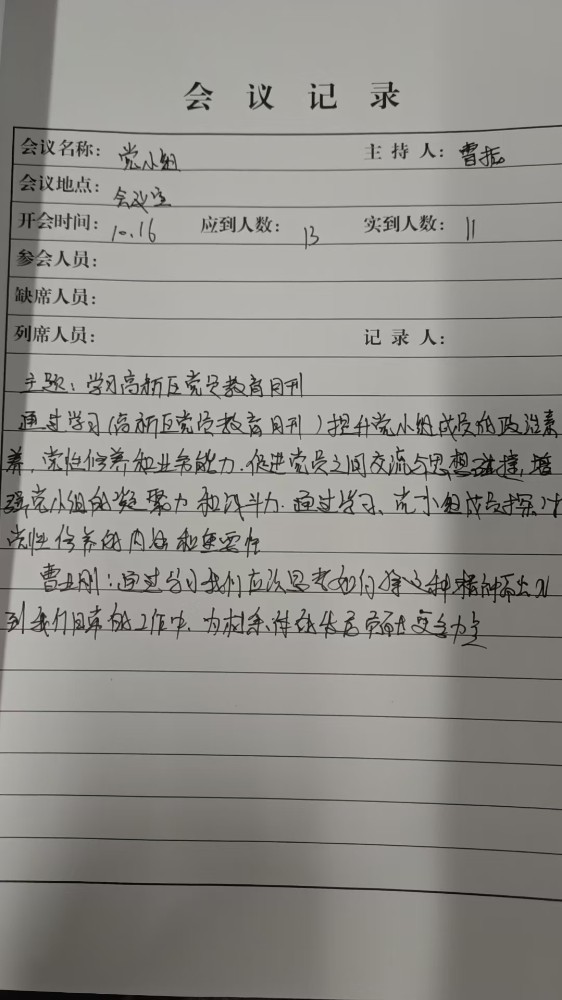 会议记录
会议名称：党小组 主持人：曹振
会议地点：会议室
开会时间：10.16 应到人数：13 实到人数：11
参会人员：
缺席人员：
列席人员： 记录人：
主题：学习高新区党员教育月刊
通过学习(高新区党员教育月刊)提升党小组成员的政治素
养，党性修养和业务能力.促进党员之间交流与思想碰撞，增
强党小组的凝聚力和战斗力.通过学习、党小组成员探讨
党性修养的内涵和重要性
曹 刚：通过学习我们应该思考如何将这种精神
到我们日常的工作中，为 发展贡献 力量